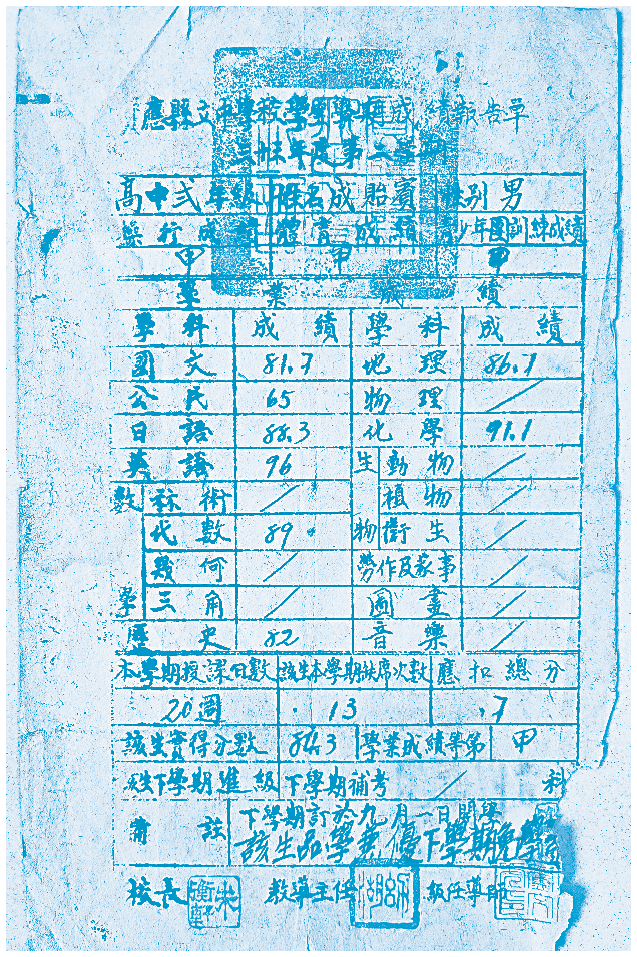 應縣文中學校學單學期成績報告單
三十三年度第二學期
高中弍年級 姓名 成貽賓 性別 男
操行成績 體育成績 青少年團訓練成績
甲 甲 甲
學業成績
學科 成績 學科 成績
國文 81.7 地理 86.7
公民 65 物理 /
日語 88.3 化學 91.1
英語 96 生物 動物 /
數學 算術 / 植物 /
代數 89. 衛生 /
幾何 / 勞作及家事 /
三角 / 圖畫 /
歷史 82 音樂 /
本學期授課日數 該生本學期缺席次數 應扣總分
20週 .13 .7
該生實得分數 84.3 學業成績等第 甲
該生下學期進級 下學期補考 / 科
備註 下學期訂於九月一日開學
該生品學兼優下學期免學
校長 朱衡 教導主任 級任導師